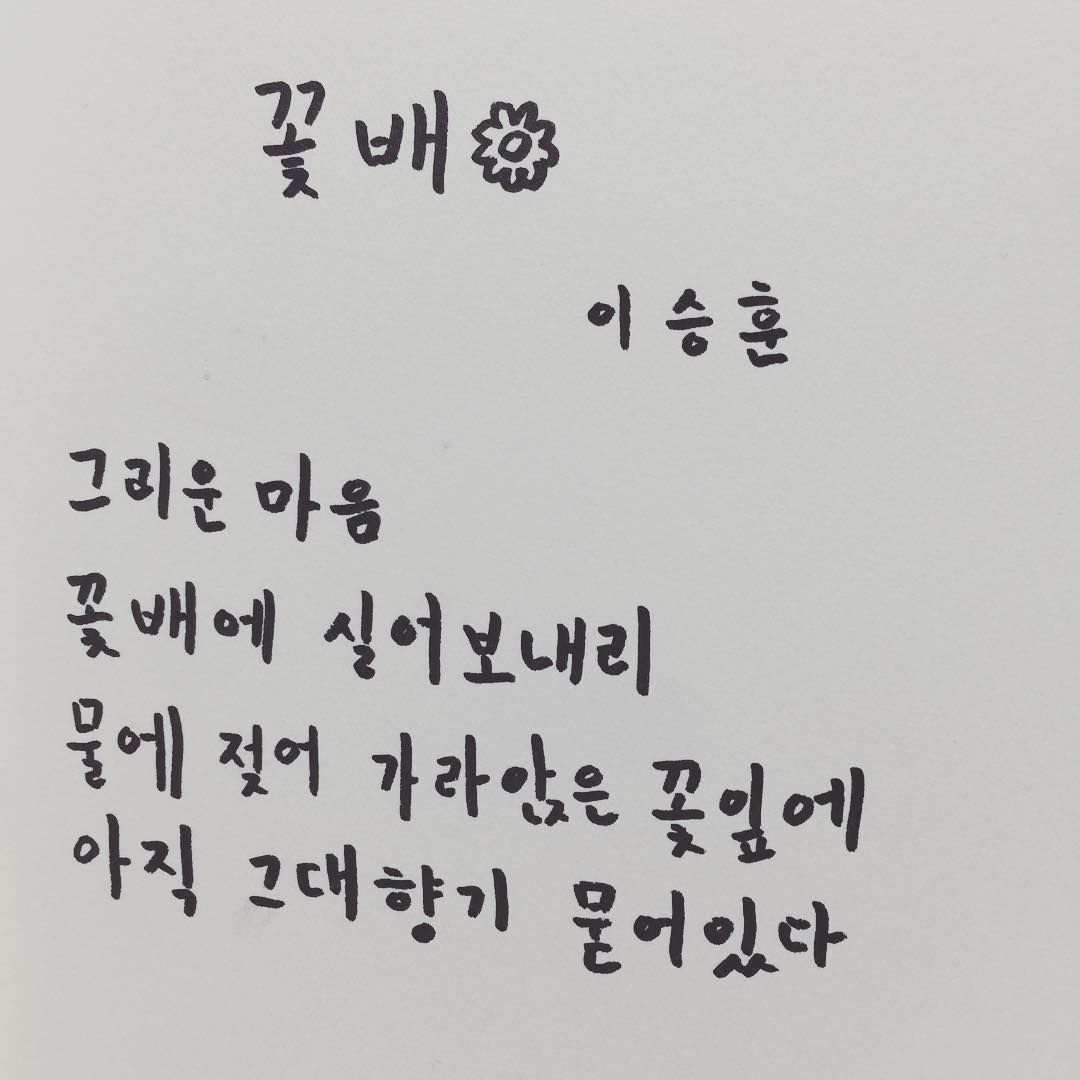 꽃배
이승훈
그리운 마음
꽃배에 실어보내리
물에 젖어 가라앉은 꽃잎에
아직 그대향기 묻어있다